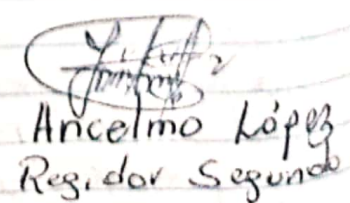 Ancelmo López
Regidor Segundo